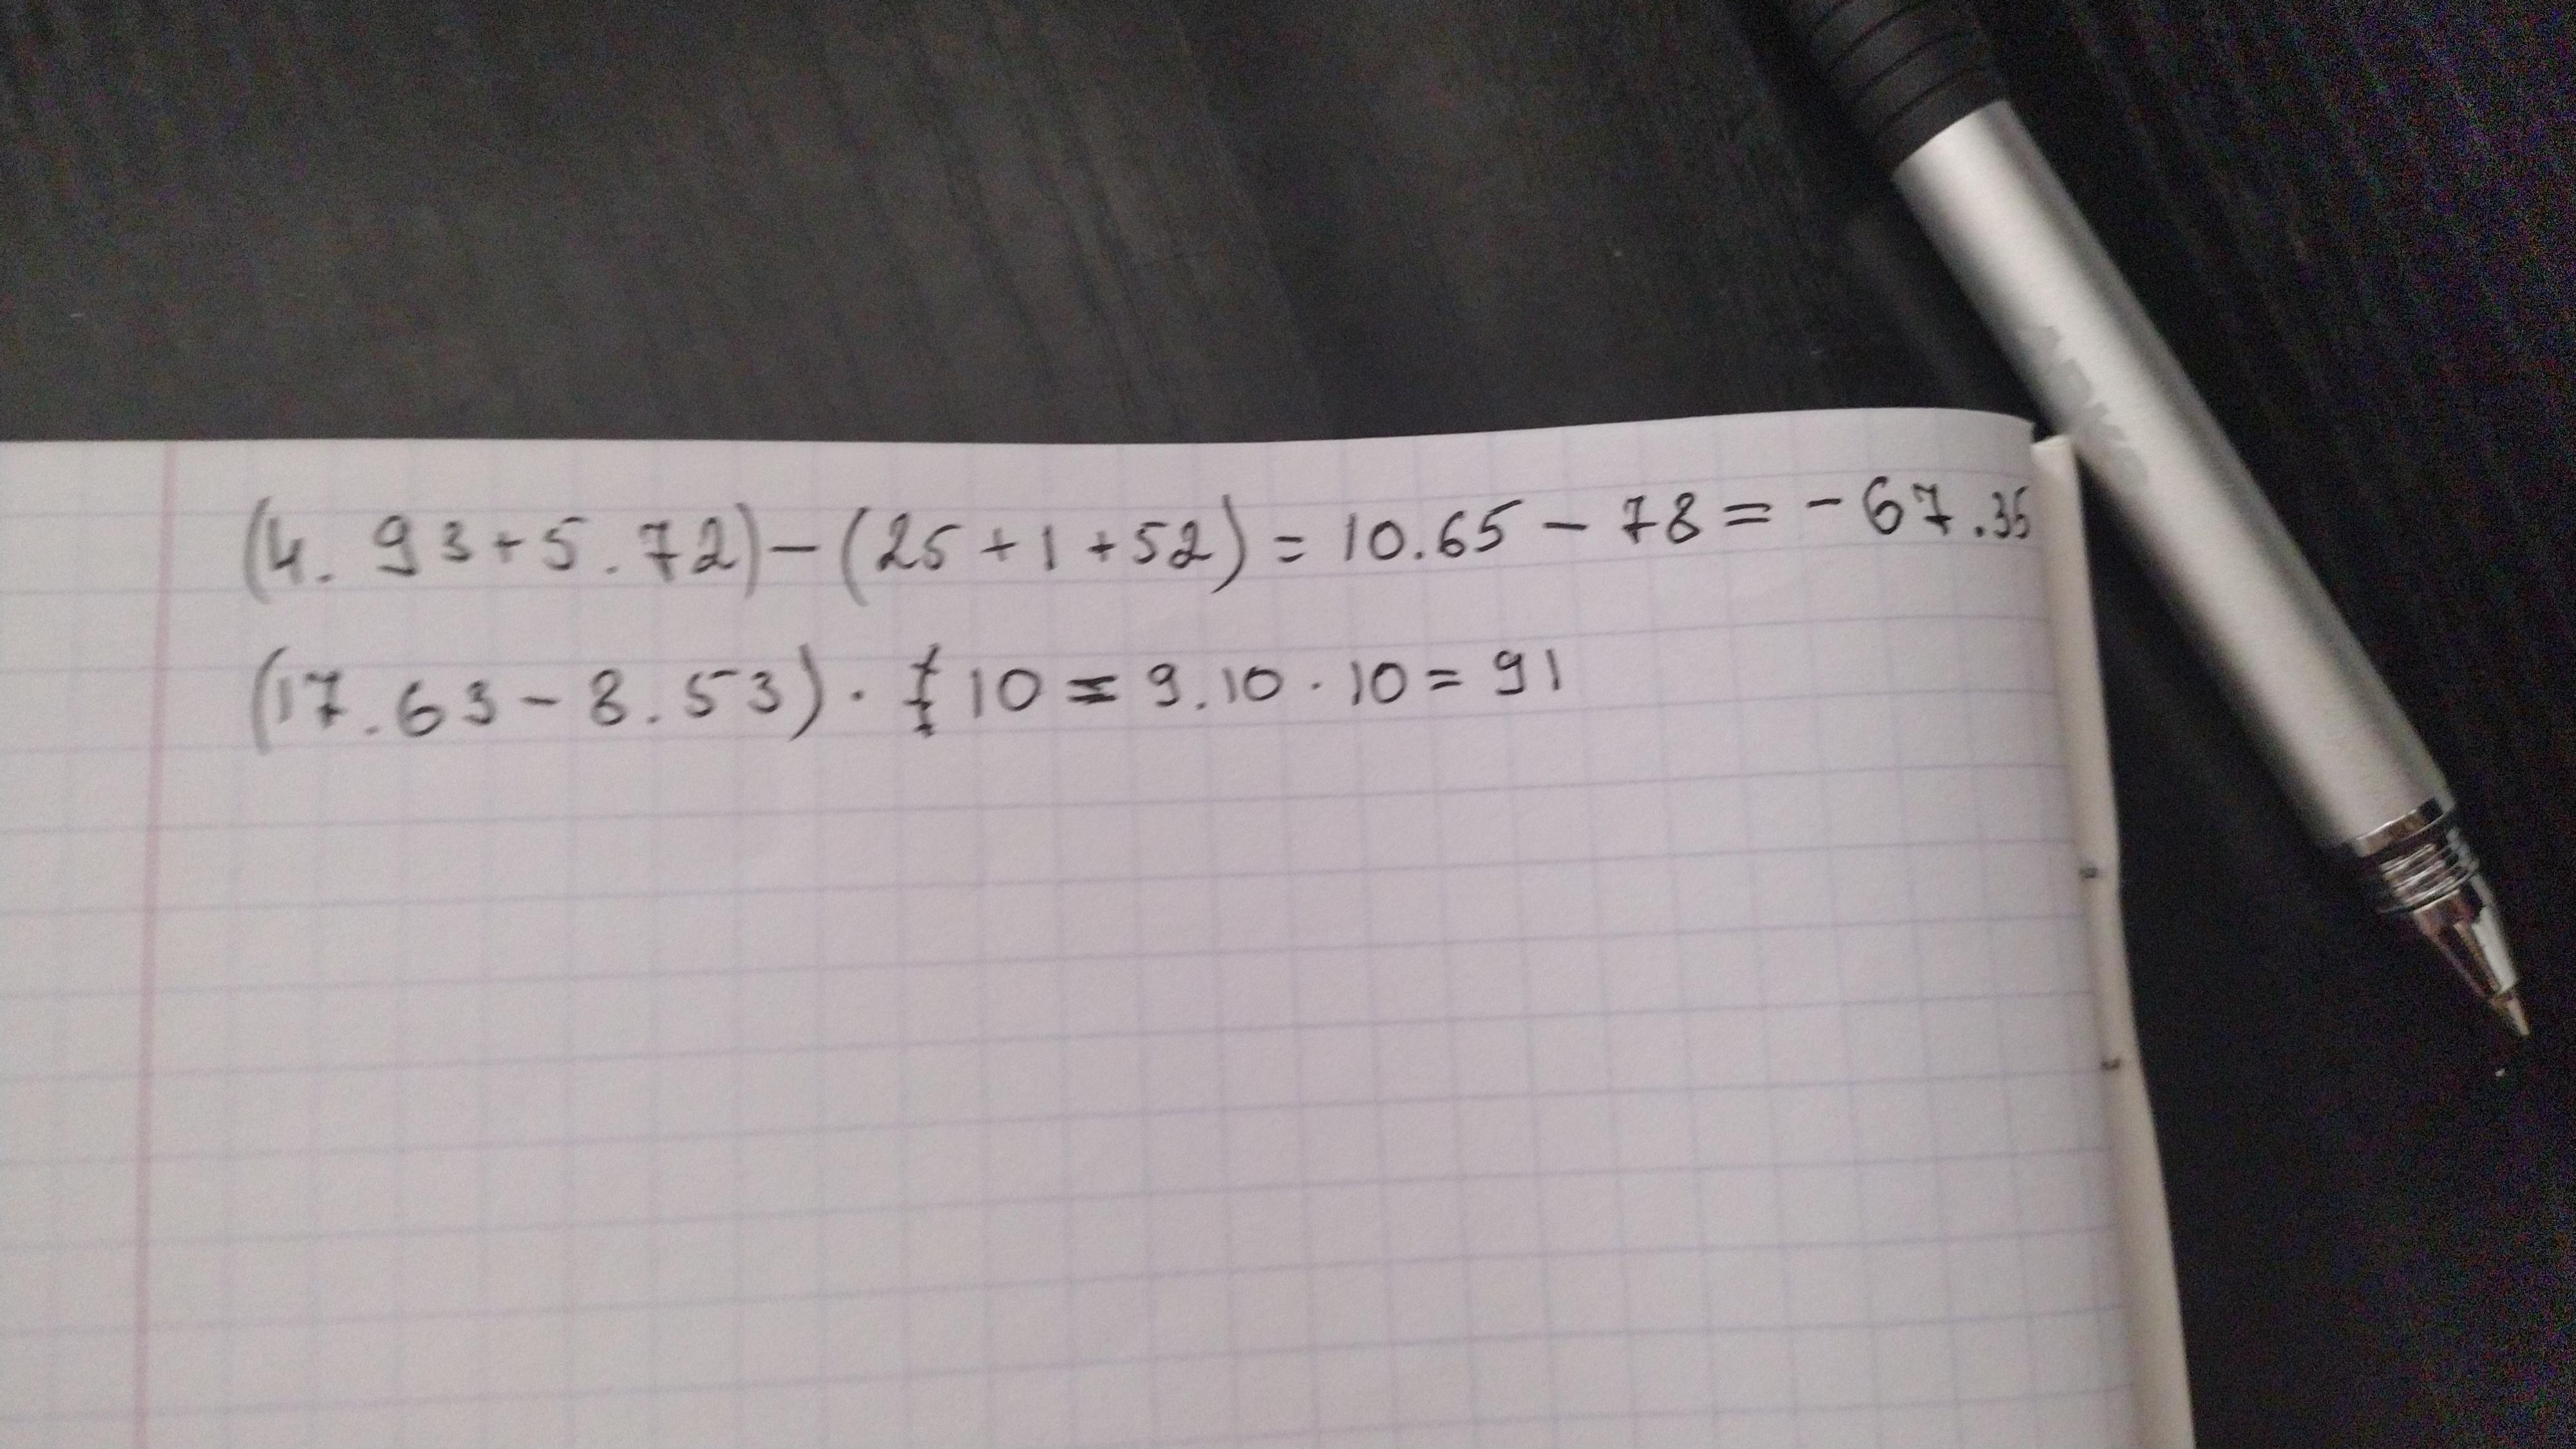 (4.93+5.72)-(25+1+52)=10.65-78=-67.35
(17.63-8.53)·10=9.10·10=91